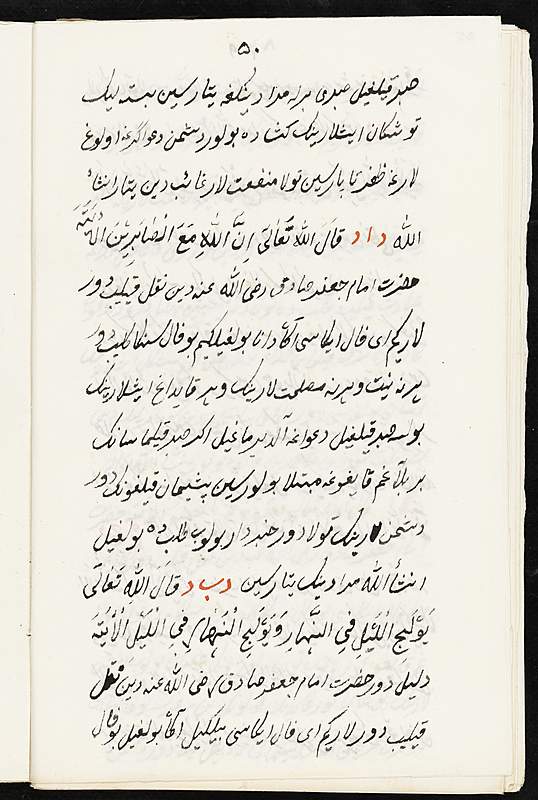 ۵۰
صبر قیلغیل صبری برله مرادینکغه یتارسین بسته لیک
توشکان ایشلارینک کشاده بولور دشمن دعواکرغه اولوغ
لارغه ظفر تاپارسین تولا منفعت لار غائب دین یتار انشاء
الله د ا د قال الله تعالی ان الله مع الصابرین الآیه دلیل
حضرت امام جعفر صادق رضی الله عنه دین نقل قیلیب دور
لار کیم ای فال ایکاسی آکاه دانا بولغیل کیم بو فال سنکا کلیب دور
هر نه نیت و هر نه مصلحت لارینک و هر قایداغ ایشلارینک
بولسه صبر قیلغیل دعواغه آلدیرماغیل اکر صبر قیلماسانک
بر بلا غم قایغوغه مبتلا بولورسین پشیمان قیلغونک دور
دشمن لارینک تولا دور خبردار بولوب طلبده بولغیل
انشأ الله مرادینک یتارسین د ب د قال الله تعالی
یولج اللیل فی النهار و یولج النهار فی اللیل الآیه
دلیل دور حضرت امام جعفر صادق رضی الله عنه دین نقل
قیلیب دور لار کیم ای فال ایکاسی بیلکیل آکاه بولغیل بو فال